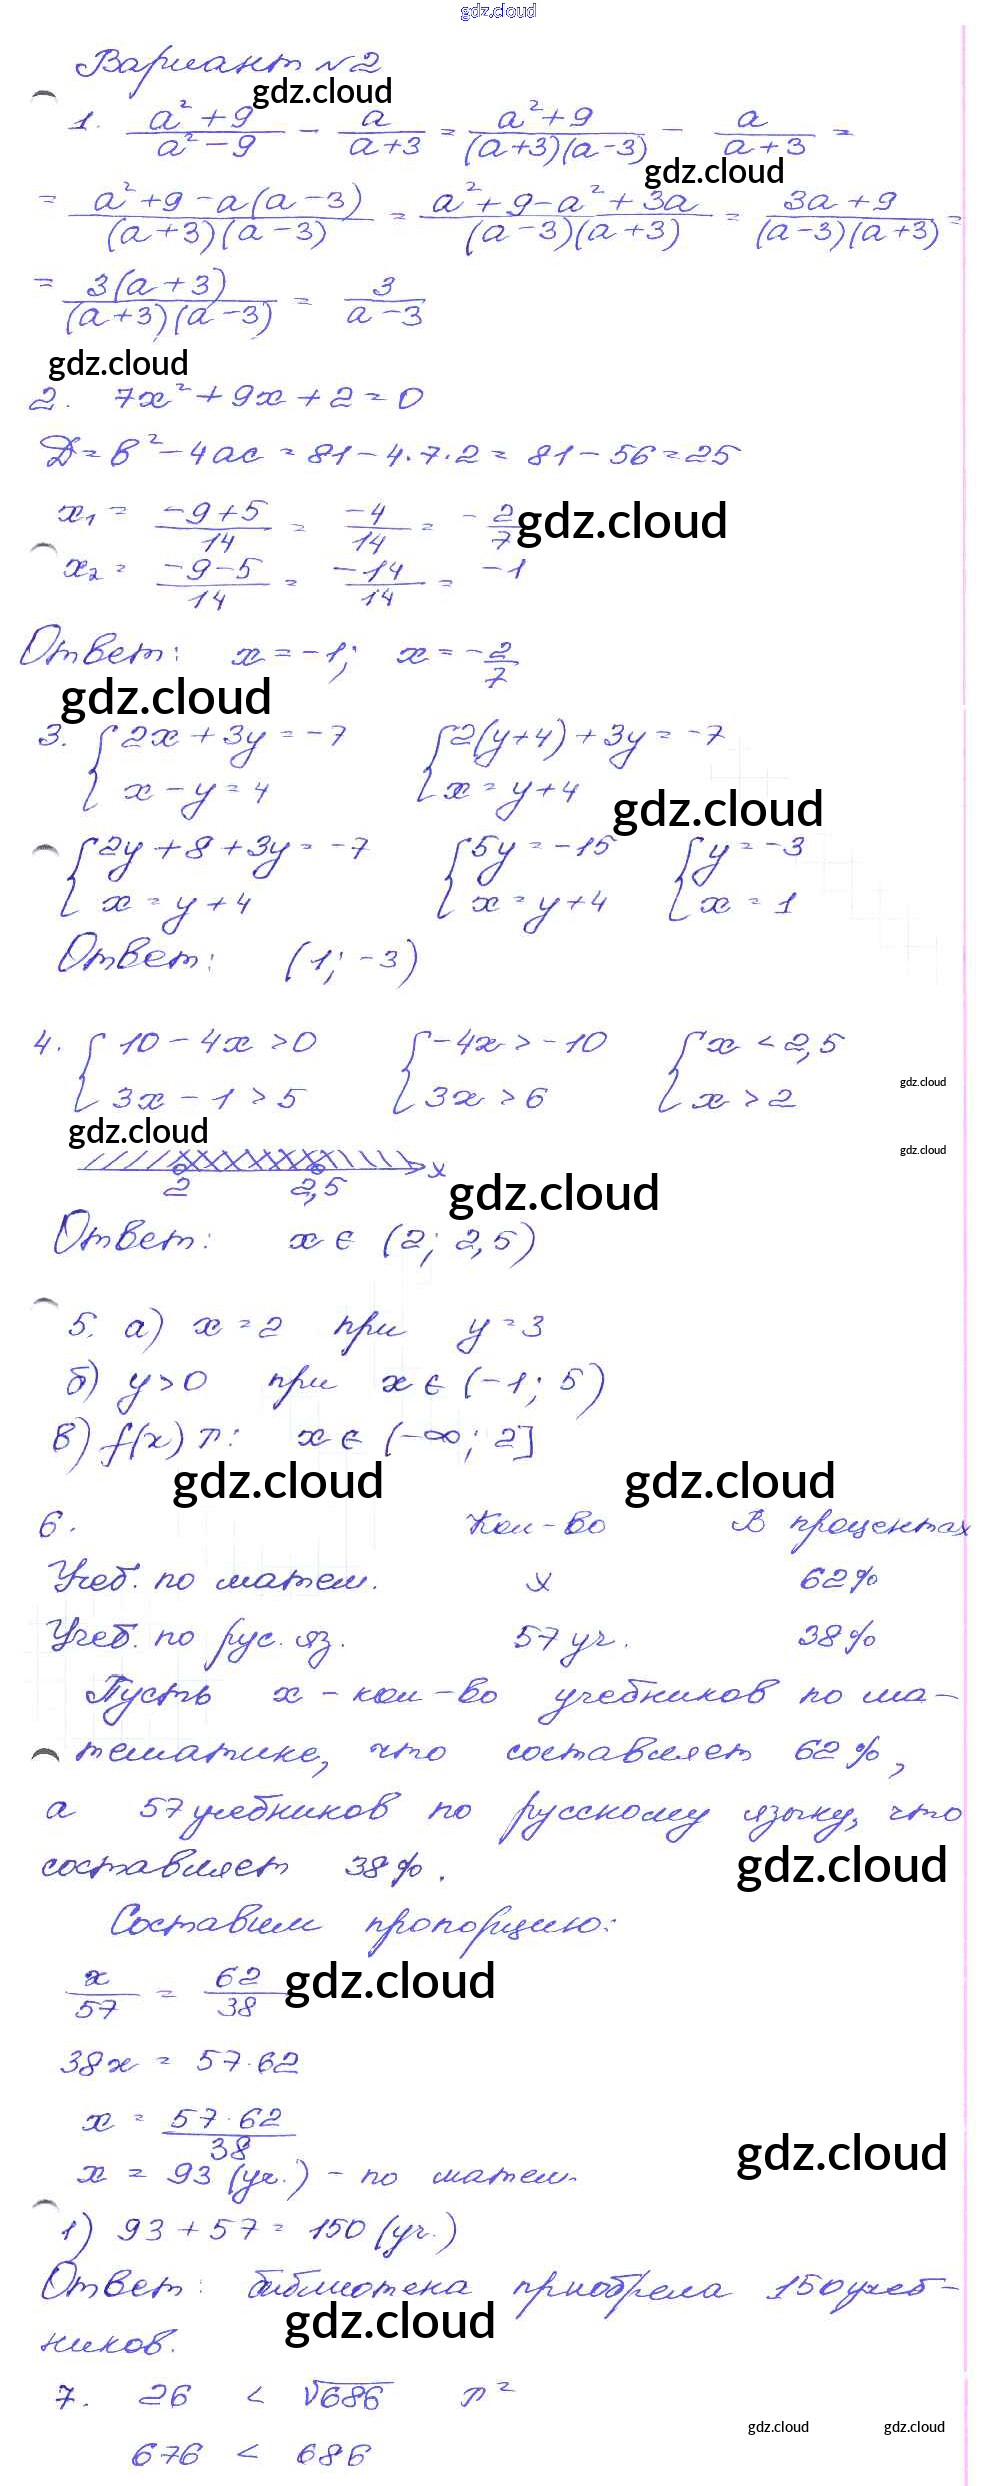 gdz.cloud
Вариант №2
gdz.cloud
1. (a² + 9)/(a² − 9) − a/(a + 3) = (a² + 9)/((a + 3)(a − 3)) − a/(a + 3) =
gdz.cloud
= (a² + 9 − a(a − 3))/((a + 3)(a − 3)) = (a² + 9 − a² + 3a)/((a − 3)(a + 3)) = (3a + 9)/((a − 3)(a + 3)) =
= 3(a + 3)/((a + 3)(a − 3)) = 3/(a − 3)
gdz.cloud
2. 7x² + 9x + 2 = 0
Д = b² − 4ac = 81 − 4·7·2 = 81 − 56 = 25
x₁ = (−9 + 5)/14 = −4/14 = −2/7
gdz.cloud
x₂ = (−9 − 5)/14 = −14/14 = −1
Ответ: x = −1; x = −2/7
gdz.cloud
3. { 2x + 3y = −7 { 2(y + 4) + 3y = −7
x − y = 4 x = y + 4
gdz.cloud
{ 2y + 8 + 3y = −7 { 5y = −15 { y = −3
x = y + 4 x = y + 4 x = 1
Ответ: (1; −3)
4. { 10 − 4x > 0 { −4x > −10 { x < 2,5
3x − 1 > 5 3x > 6 x > 2
gdz.cloud
gdz.cloud
gdz.cloud
x
2 2,5
gdz.cloud
Ответ: x ∈ (2; 2,5)
5. а) x = 2 при y = 3
б) y > 0 при x ∈ (−1; 5)
в) f(x) ↗: x ∈ (−∞; 2]
gdz.cloud gdz.cloud
6. Кол-во В процентах
Учеб. по матем. x 62%
Учеб. по рус. яз. 57 уч. 38%
Пусть x - кол-во учебников по ма-
тематике, что составляет 62%,
а 57 учебников по русскому языку, что
составляет 38%.
gdz.cloud
Составим пропорцию:
x/57 = 62/38
gdz.cloud
38x = 57·62
x = (57·62)/38
gdz.cloud
x = 93 (уч.) - по матем.
1) 93 + 57 = 150 (уч.)
Ответ: библиотека приобрела 150 учеб-
gdz.cloud
ников.
7. 26 < √686 п²
gdz.cloud gdz.cloud
676 < 686